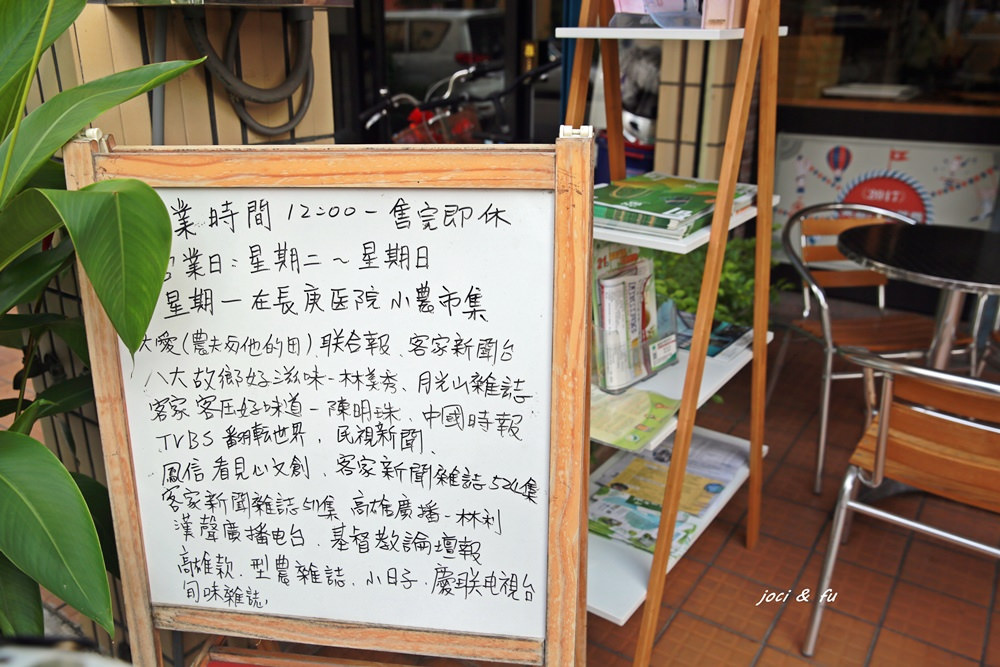 業時間 12:00-售完即休
營業日:星期二~星期日
星期一在長庚医院小農市集
大愛(農夫與他的田)、联合報、客家新聞台
八大故鄉好滋味-林美秀、月光山雜誌
客家客庄好味道-陳明珠、中國時報
TVBS翻転世界、民視新聞、
鳳信看見心文創、客家新聞雜誌524集
客家新聞雜誌511集 高雄廣播-林利
漢聲廣播电台、基督教論壇報
高雄款、型農雜誌、小日子、慶联电視台
旬味雜誌,
2017
joci & fu